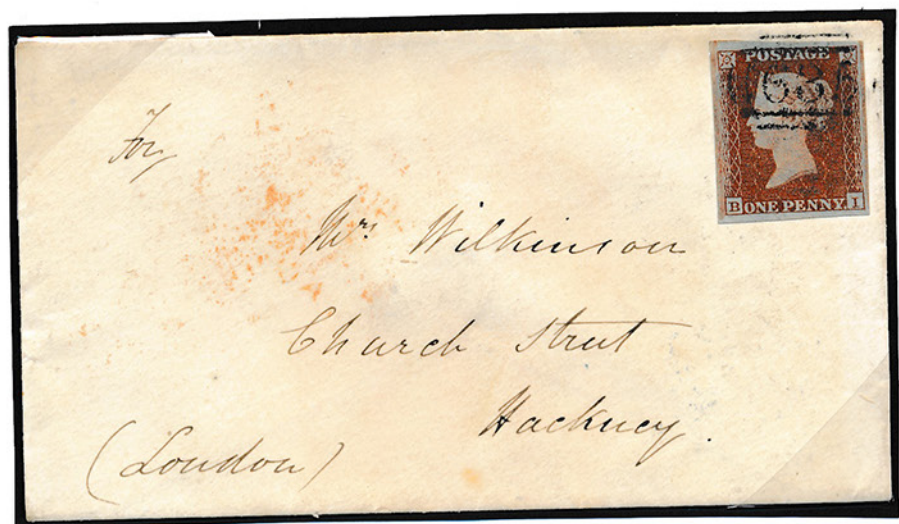 POSTAGE
B ONE PENNY I
For
Mrs. Wilkinson
Church Street
Hackney.
(London)